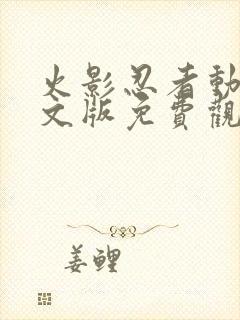 火影忍者動
文版免費觀
姜鲤